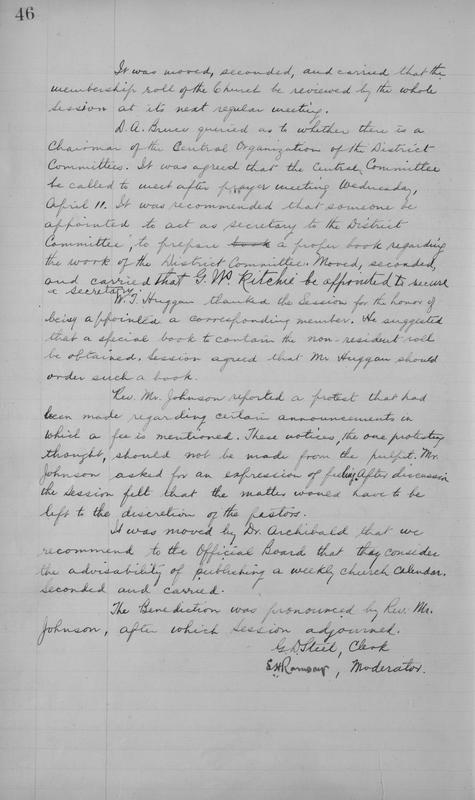 46
It was moved, seconded, and carried that the
membership roll of the Church be reviewed by the whole
Session at its next regular meeting.
D. A. Bruce queried as to whether there is a
Chairman of the Central Organization of the District
Committees. It was agreed that the Central Committee
be called to meet after prayer meeting Wednesday,
April 11. It was recommended that someone be
appointed to act as secretary to the District
Committee, to prepare book a proper book regarding
the work of the District Committee. Moved, seconded,
and carried that G. W. Ritchie be appointed to secure
a secretary.
W. T. Huggan thanked the Session for the honor of
being appointed a corresponding member. He suggested
that a special book to contain the non-resident roll
be obtained. Session agreed that Mr Huggan should
order such a book.
Rev. Mr. Johnson reported a protest that had
been made regarding certain announcements in
which a fee is mentioned. These notices, the one protesting
thought, should not be made from the pulpit. Mr.
Johnson asked for an expression of feeling. After discussion
the Session felt that the matter would have to be
left to the discretion of the pastors.
It was moved by Dr. Archibald that we
recommend to the Official Board that they consider
the advisability of publishing a weekly church calendar.
Seconded and carried.
The Benediction was pronounced by Rev. Mr.
Johnson, after which Session adjourned.
G. D. Steel, Clerk
Ramsay, Moderator.